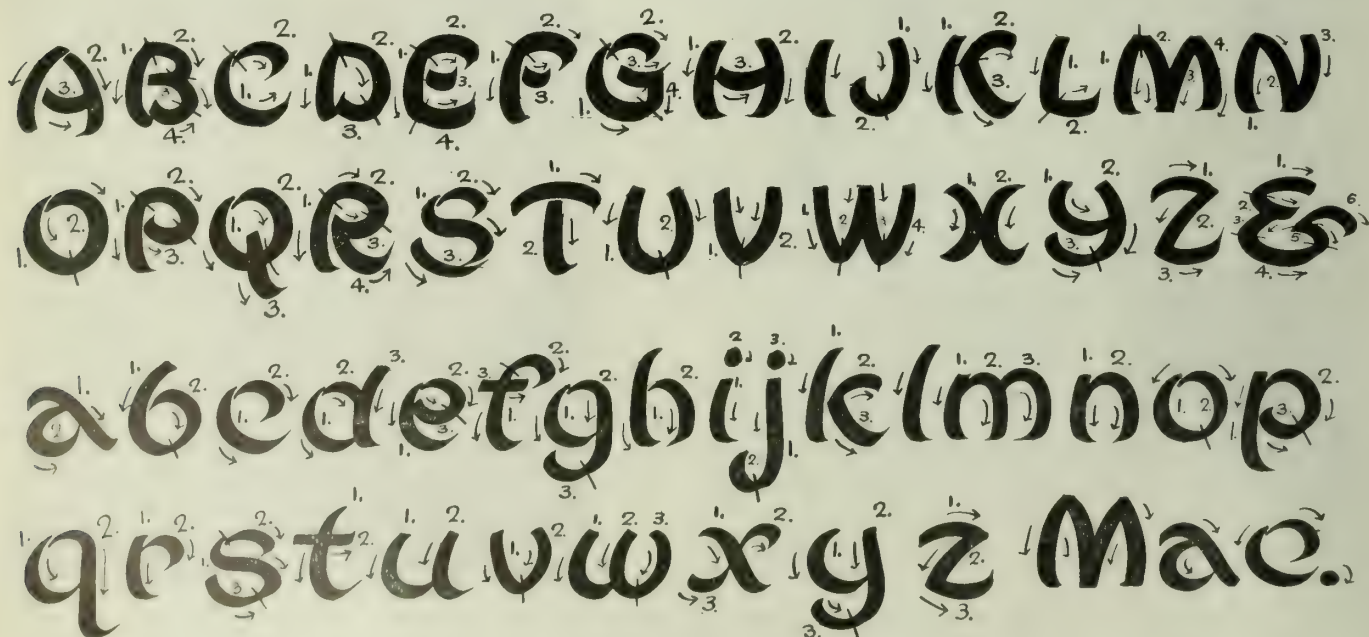 A B C D E F G H I J K L M N
O P Q R S T U V W X Y Z &
a b c d e f g h i j k l m n o p
q r s t u v w x y z Mac.